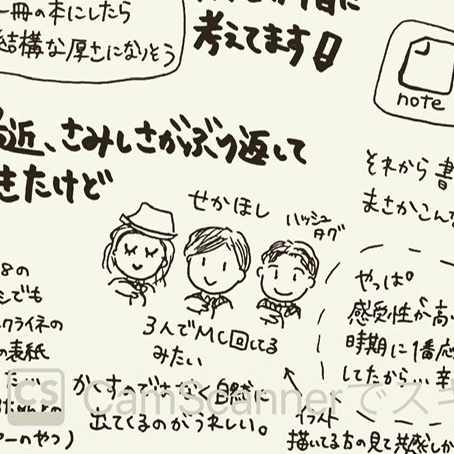 一冊の本にしたら
結構な厚さになりそう
考えてます!
note
近、さみしさがぶり返して
きたけど
それから
まさかこんな
せかほし
ハッシュ
タグ
3人でMC回してる
みたい
やっぱ
感受性が高い
時期に1番応
してたから…辛
8の
でも
クライネの
の表紙
かすのではなく自然に
出てくるのがうれしい。
イラスト
描いてる方の見て共感しか
CS CamScannerでスキ